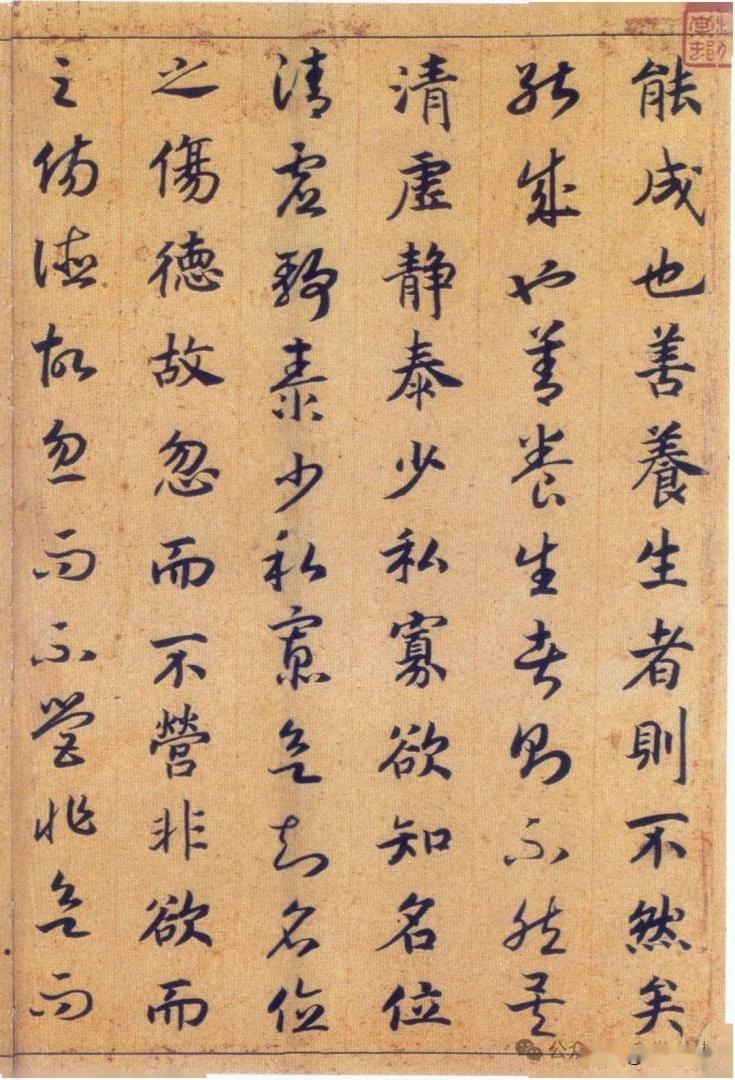 能成也善養生者則不然矣
能成也善養生者則不然矣
清虛靜泰少私寡欲知名位
清虛靜泰少私寡欲知名位
之傷德故忽而不營非欲而
之傷德故忽而不營非欲而
公众